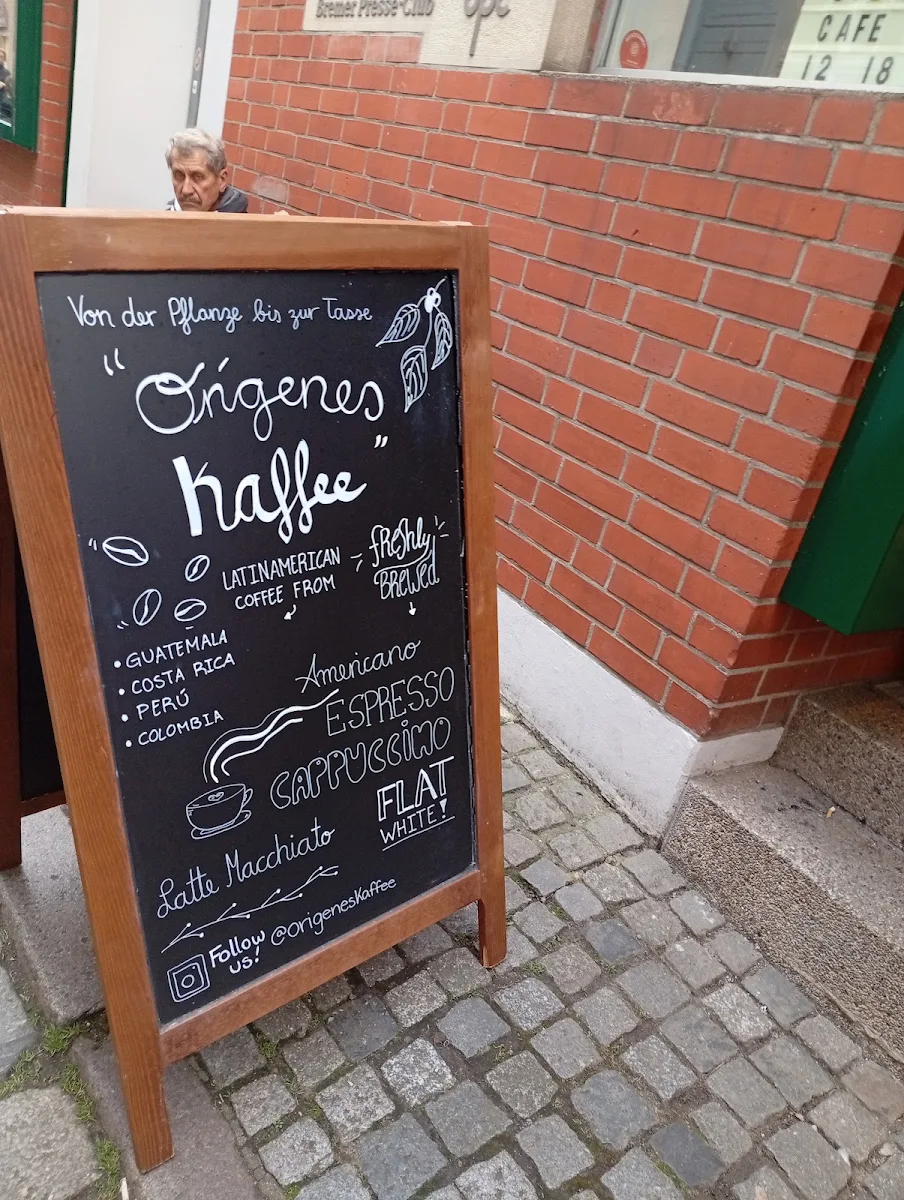 Bremer Presse-Club
CAFE
12 18
Von der Pflanze bis zur Tasse
"Orígenes
Kaffee"
LATINAMERICAN
COFFEE FROM
FRESHLY
BREWED
• GUATEMALA
• COSTA RICA
• PERÚ
• COLOMBIA
Americano
ESPRESSO
CAPPUCCINO
FLAT
WHITE!
Latte Macchiato
Follow
us!
@origeneskaffee